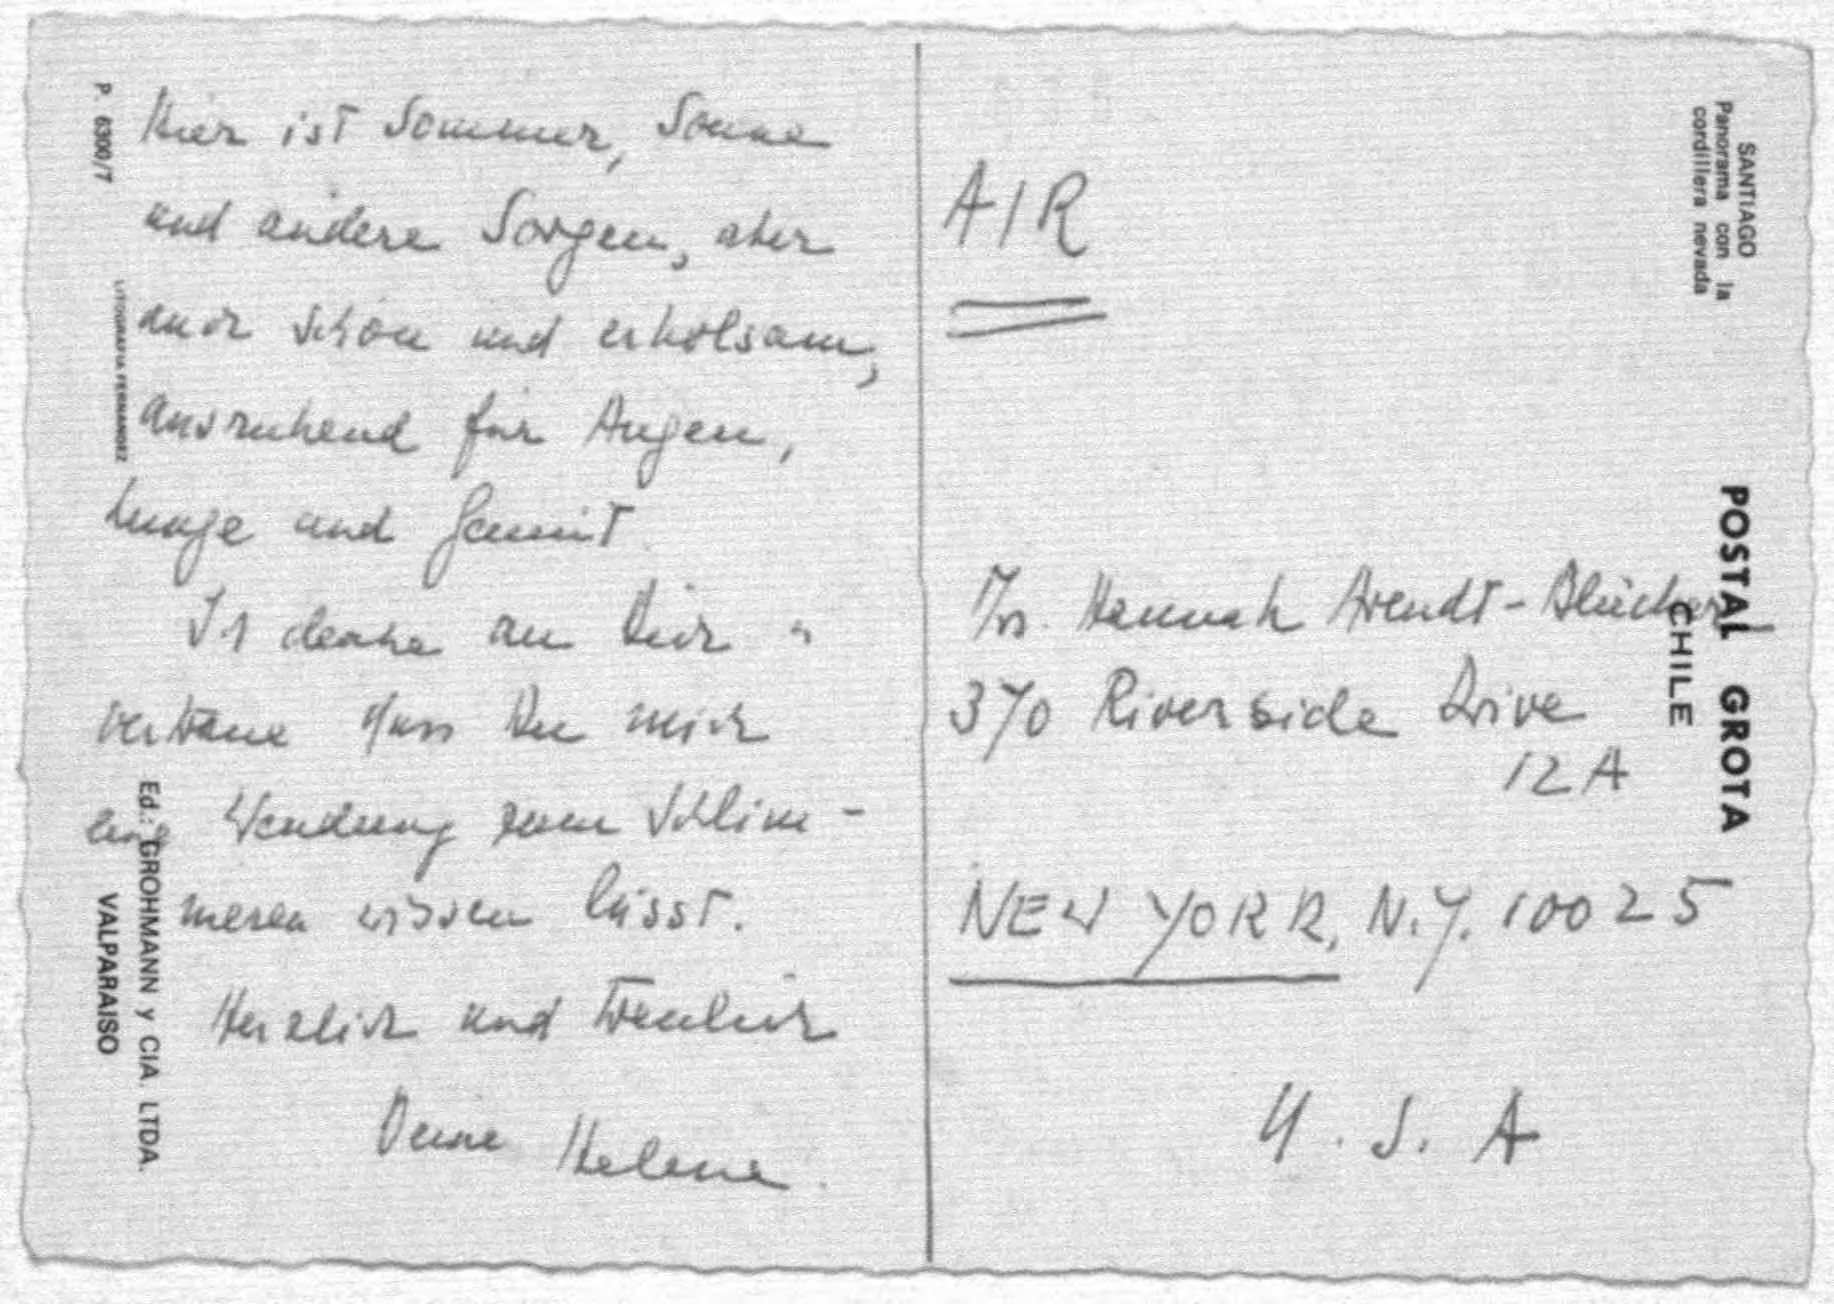 Hier ist Sommer, Sonne
und andere Sorgen, aber
auch schön und erholsam,
ausruhend für Augen,
Lunge und Gemüt.
Ich denke an Dich u
vertraue dass Du mich
Wendung zum Schlim-
meren wissen lässt.
Herzlich und treulich
Deine Helene.
AIR
Hannah Arendt-Blücher
370 Riverside Drive
12A
NEW YORK, N.Y. 10025
U.S.A
P. 6300/7
LITOGRAFIA FERNANDEZ
Ed.: GROHMANN y CIA. LTDA.
VALPARAISO
SANTIAGO
Panorama con la
cordillera nevada
POSTAL GROTA
CHILE